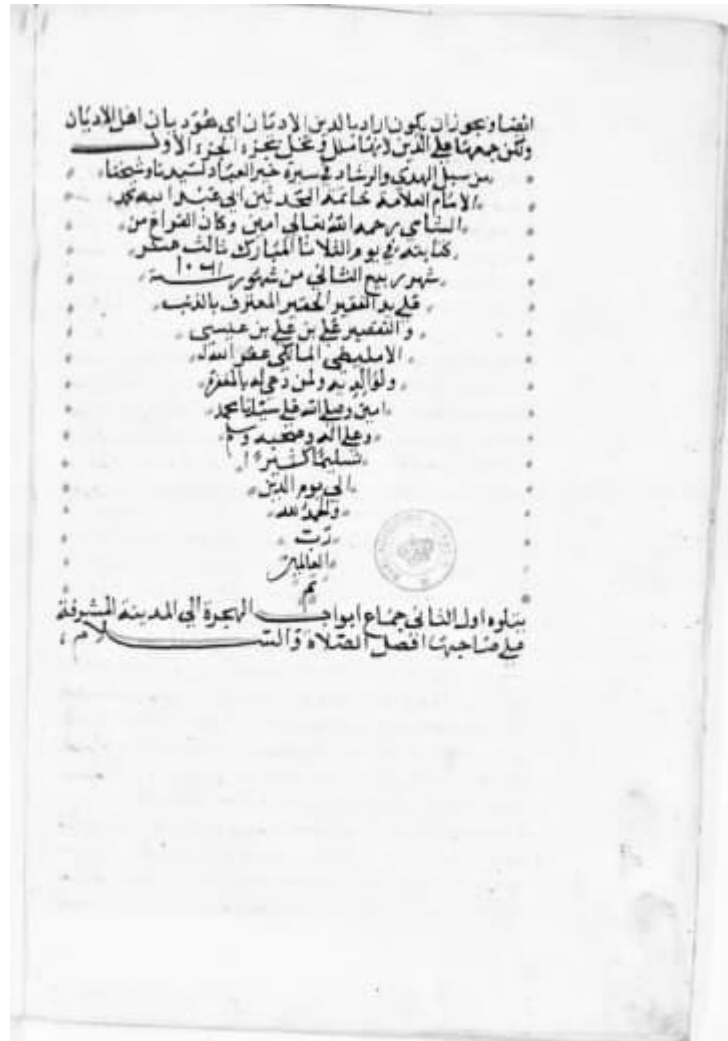 ايضا ويجوز ان يكون اراد بالدين الاديان اي هو ديان اهل الاديان
ولكن جمعها على الدين لانها ملل ونحل نجز الجزء الاول
من سبل الهدى والرشاد في سيرة خير العباد لسيدنا وشيخنا
الامام العلامة خاتمة المحدثين ابي عبد الله محمد
الشامي رحمه الله تعالى امين وكان الفراغ من
كتابته في يوم الثلاثا المبارك ثالث عشر
شهر ربيع الثاني من شهور سنة
على يد الفقير الحقير المعترف بالذنب
والتقصير علي بن علي بن عيسى
المالكي عفر الله له
ولوالديه ولمن دعى له بالمغفرة
امين وصلى الله على سيدنا محمد
وعلى اله وصحبه وسلم
تسليما كثيرا
الى يوم الدين
والحمد لله
رب
العالمين
تم
يتلوه اول الثاني جماع ابواب الهجرة الى المدينة المشرفة
على صاحبها افضل الصلاة والسلام